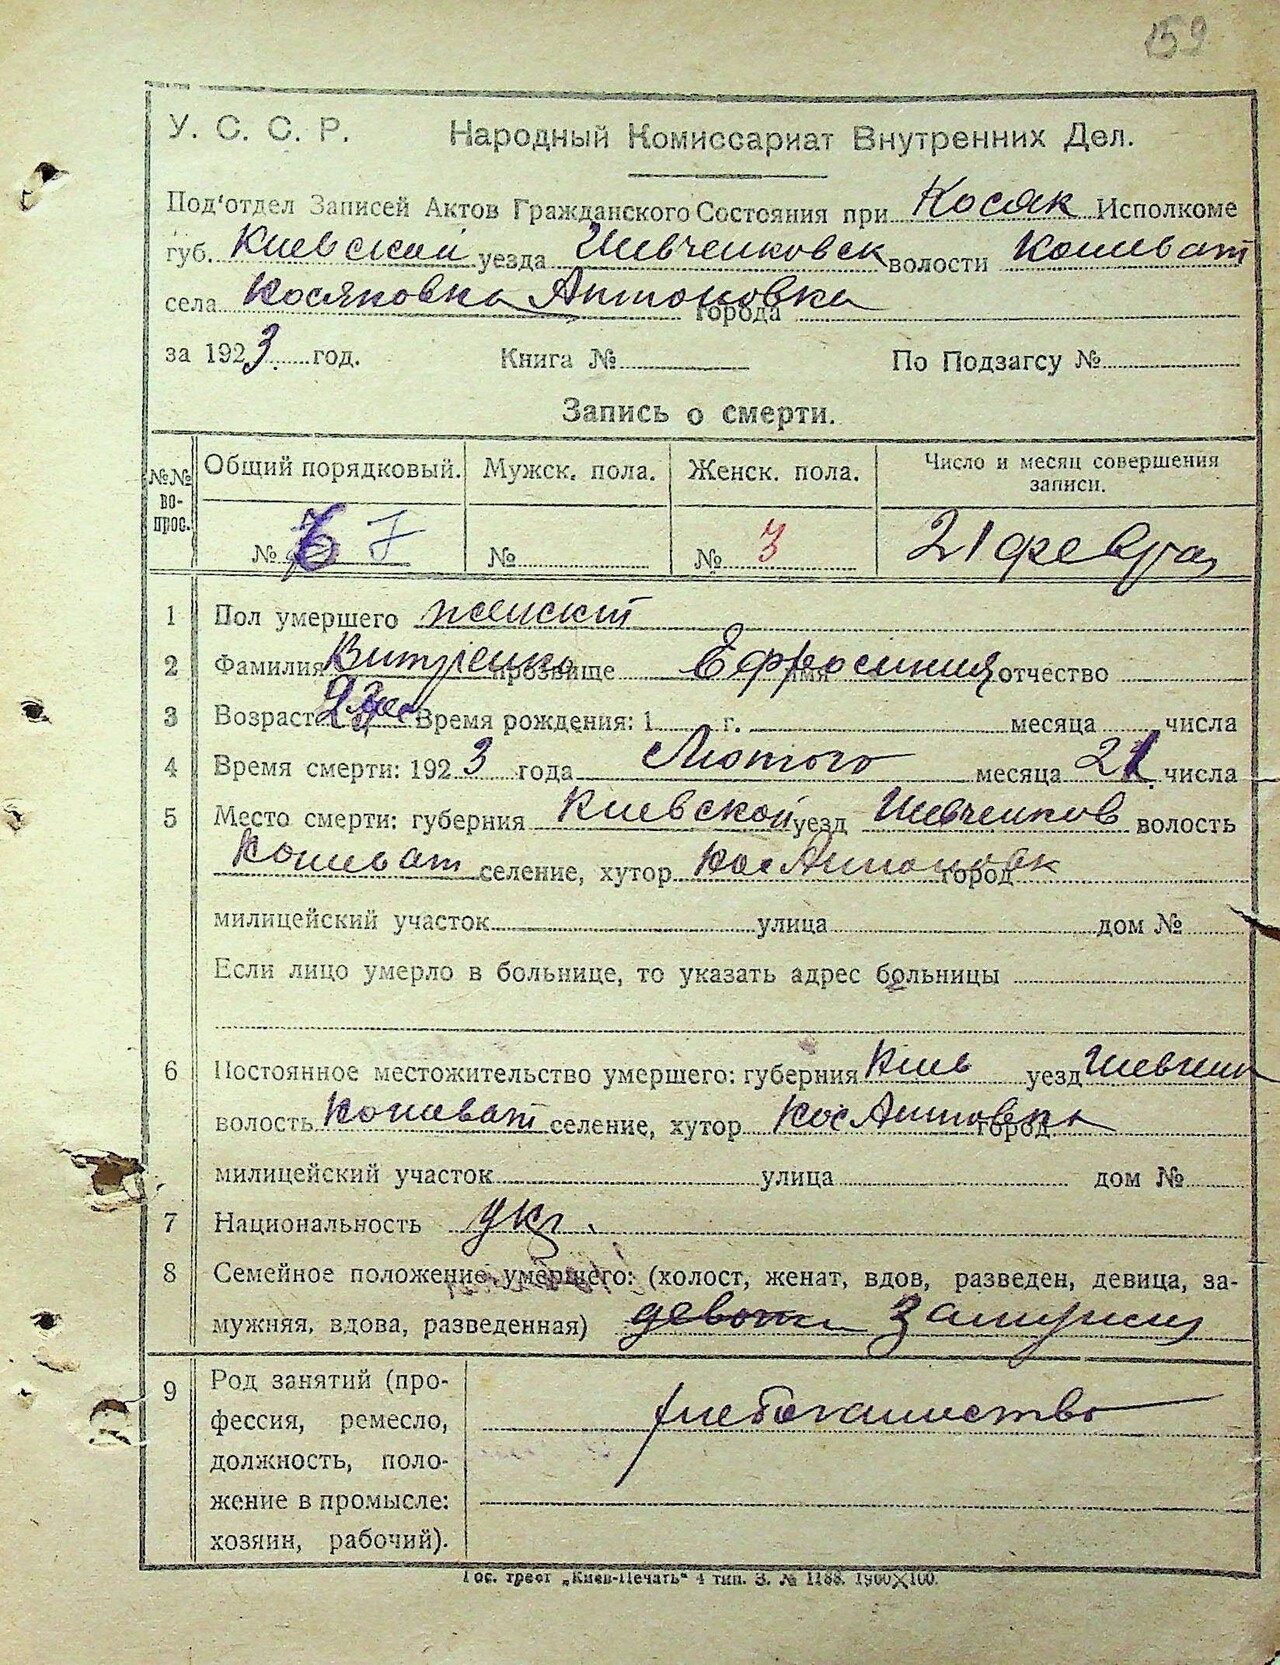 159
У. С. С. Р. Народный Комиссариат Внутренних Дел.
Под'отдел Записей Актов Гражданского Состояния при Косяк Исполкоме
губ. Киевской уезда Шевченковск волости Кошеват
села Косяковка Антоновка города
за 1923 год. Книга № По Подзагсу №
Запись о смерти.
№№ вопрос. Общий порядковый. Мужск. пола. Женск. пола. Число и месяц совершения записи.
№ 7 № № 3 21 февра
1 Пол умершего женскт
2 Фамилия прозвище Ефросиния имя отчество
3 Возраст Время рождения: 1 г. месяца числа
4 Время смерти: 1923 года Лютого месяца 21 числа
5 Место смерти: губерния Киевской уезд Шевченков волость
Кошеват селение, хутор Кос Антоновк город
милицейский участок улица дом №
Если лицо умерло в больнице, то указать адрес больницы
6 Постоянное местожительство умершего: губерния Киев уезд Шевчен
волость Кошеват селение, хутор Кос Антовка город
милицейский участок улица дом №
7 Национальность укр.
8 Семейное положение умершего: (холост, женат, вдов, разведен, девица, за-
мужняя, вдова, разведенная) замужняя
9 Род занятий (про-
фессия, ремесло,
должность, поло-
жение в промысле:
хозяин, рабочий).
хлебопашество
Гос. трест „Киев-Печать“ 4 тип. З. № 1188. 1900×100.